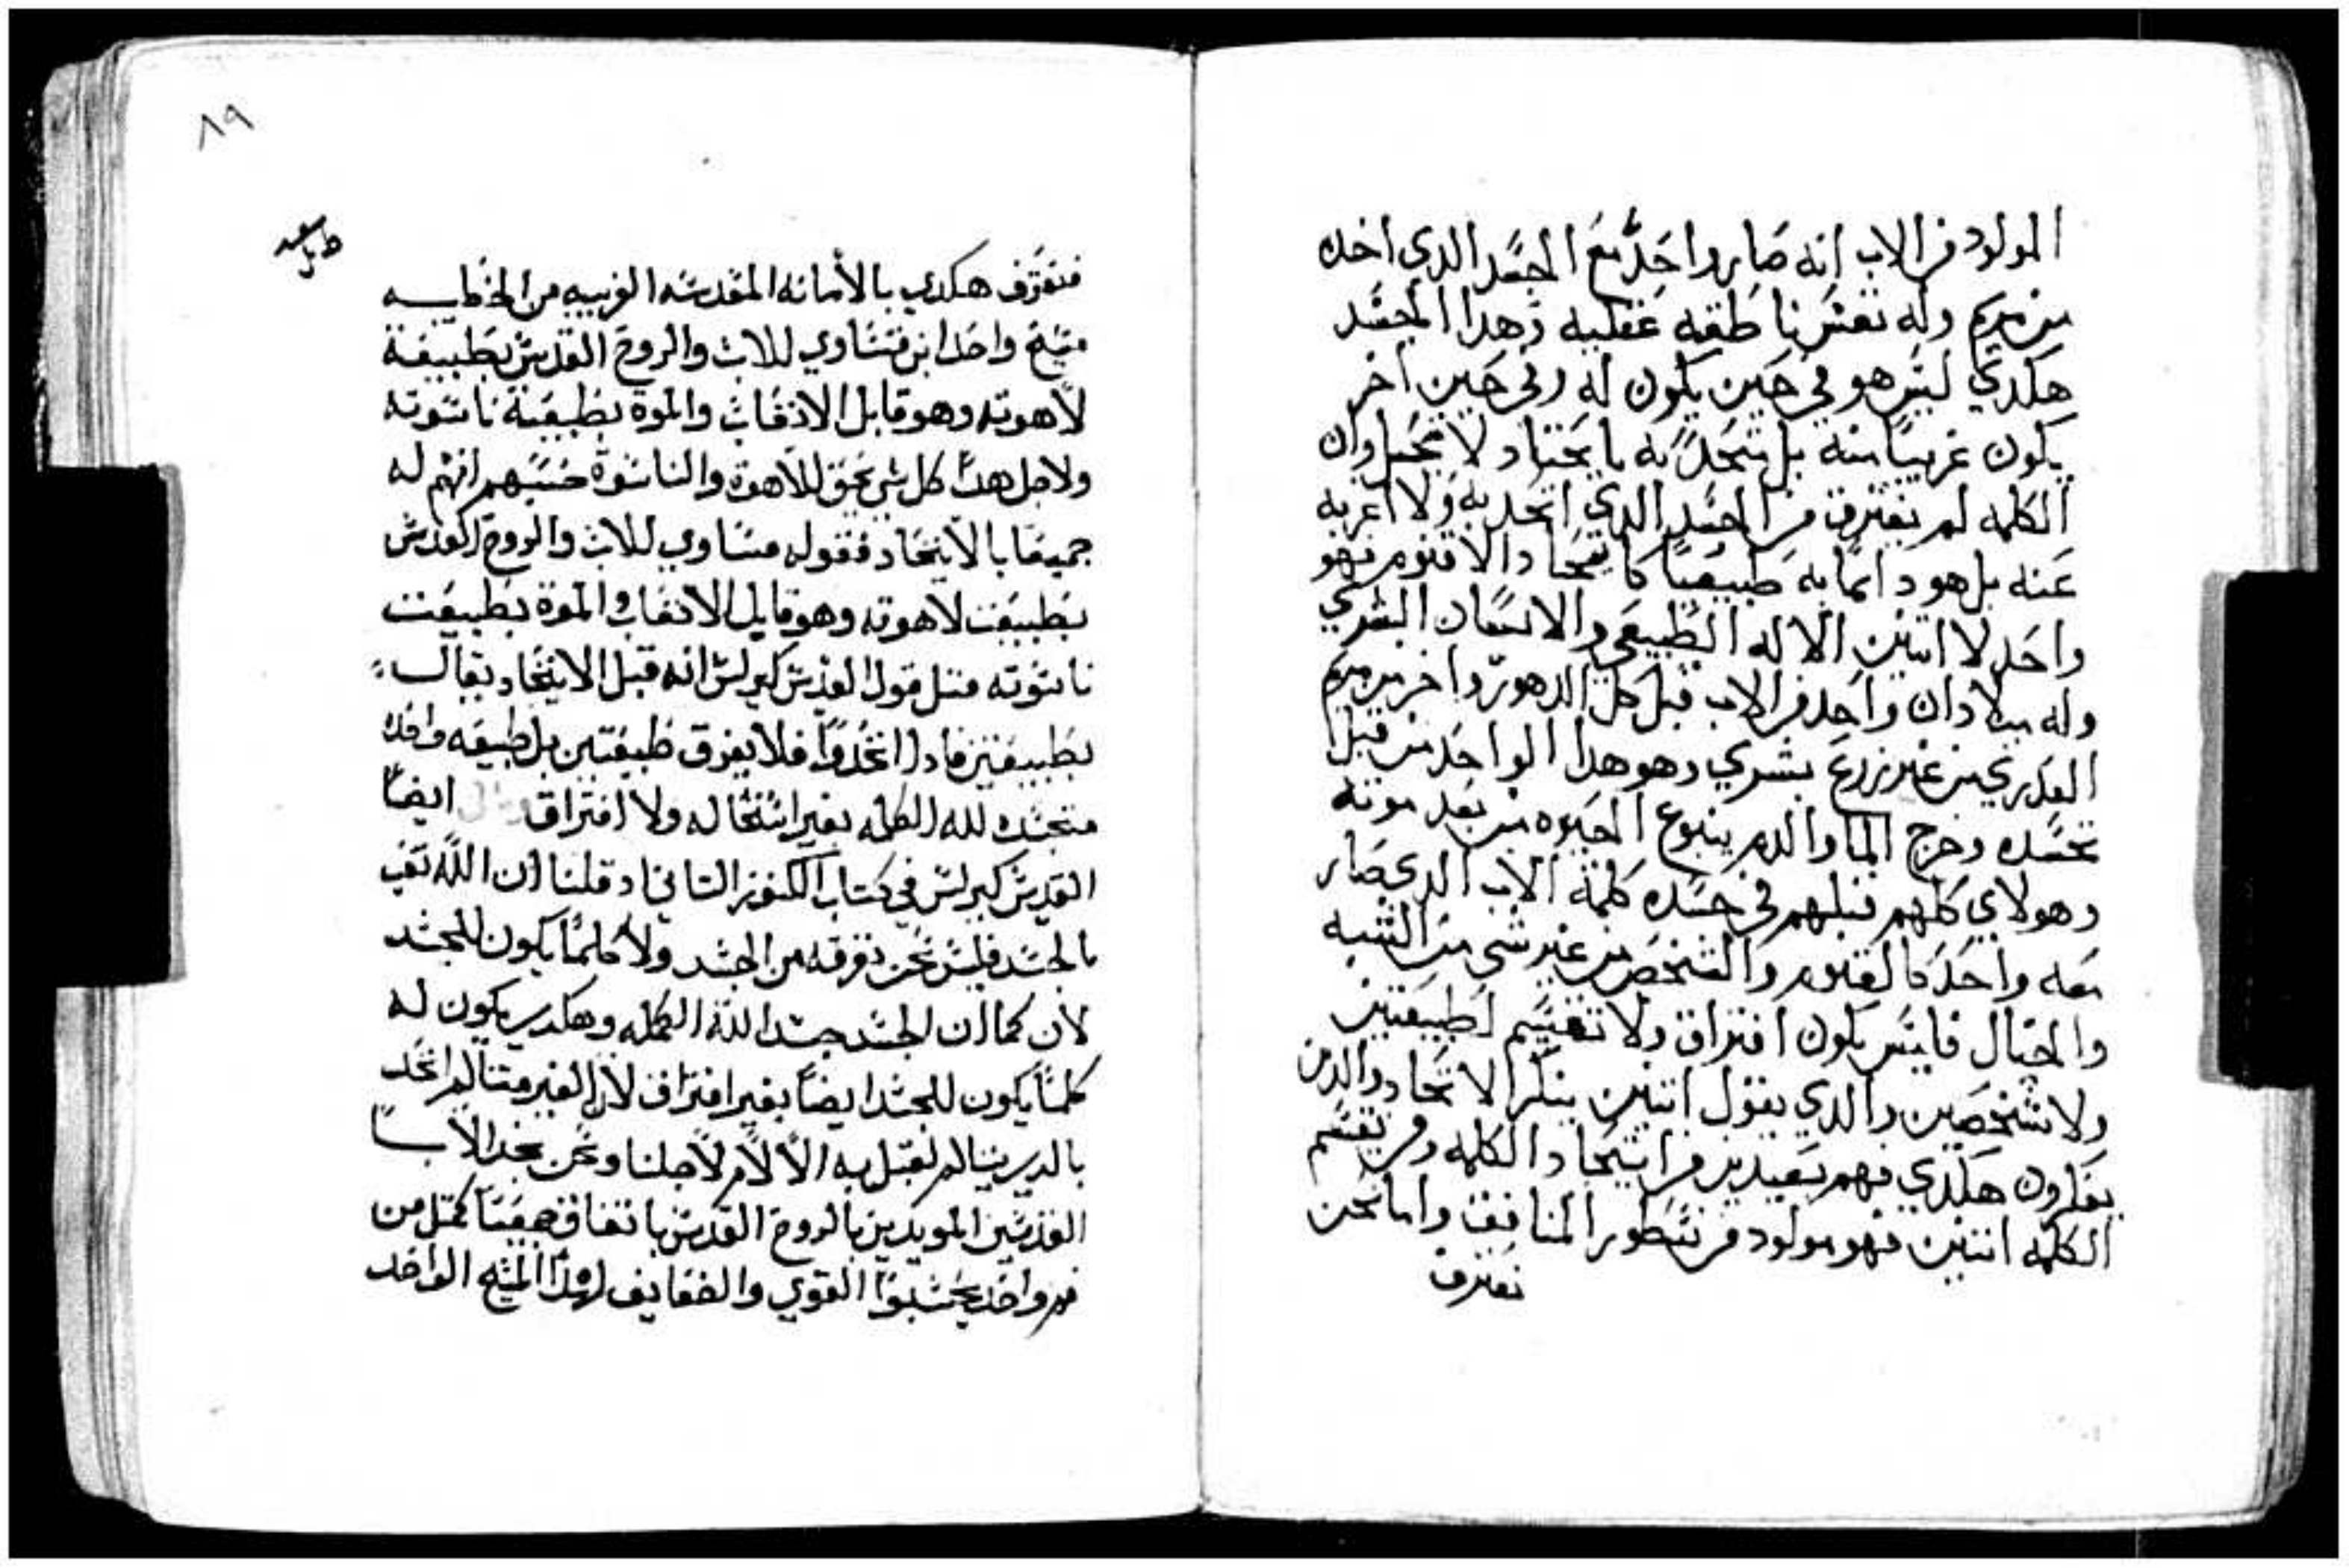 المولود من الاب انه صار واحد مع الجسد الدي اخده
من مريم وله نفس ناطقه عقليه وهدا الجسد
هكدي ليس هو في حين يكون له وفي حين اخر
يكون غريبا منه بل متحد به باتحاد لا تحيل وان
الكلمه لم يفترق من الجسد الدي اتحد به ولا اغربه
عنه بل هو دايما به طبيعيا كاتحاد الاقنوم فهو
واحد لا اتنين الاله الطبيعي والانسان البشري
وله ميلادان واحد من الاب قبل كل الدهور واخر من مريم
العدري من غير زرع بشري وهو هدا الواحد من قبل
تجسده وخرج الما والدم ينبوع الحيوه من بعد موته
وهولاي كلهم قبلهم في جسده كلمة الاب الدي صار
معه واحد كالقنوم والشخص من غير شي من الشبه
والخيال فايس يكون افتراق ولا تقسيم لطبيعتين
ولا شخصين والدي يقول اتنين ينكر الاتحاد والدين
يفكرون هكدي فهم بعيدين من اتحاد الكلمه ومن يقسم
الكلمه اتنين فهو مولود من نسطور المنافق واما نحن
نعترف
٨٩
فنعترف هكدي بالأمانه المقدسه الغريبه من
مسيح واحد ابن متساوي للاب والروح القدس بطبيعة
لاهوته وهو قابل الاوجاع والموة بطبيعة ناسوته
ولاجل هدا كل شي يحق للاهوة والناسوة حسبهم انهم له
جميعا بالاتحاد فقوله مساوي للاب والروح القدس
بطبيعت لاهوته وهو قابل والموة بطبيعت
ناسوته متل قول القديس كيرلس انه قبل الاتحاد يقال
بطبيعتين فادا اتحدوا فلا يفرق طبيعتين بل طبيعه واحده
متجسده لله الكلمه بغير استحاله ولا افتراق ايضا
القديس كيرلس في كتاب الكنوز التاني ادا قلنا ان الله تعب
بالجسد فليس نحن نفرقه من الجسد ولا كلما يكون للجسد
لان كما ان الجسد جسد الله الكلمه وهكدي يكون له
كلما يكون للجسد ايضا بغير افتراق لان الغير متالم اتحد
بالدي يتالم ليقبل به الالام لاجلنا ونحن نجد الابا
القديسين المويدين بالروح القدس باتفاق جميعا كمتل من
فم واحد يحسبوا القوي والضعايف لهدا المسيح الواحد